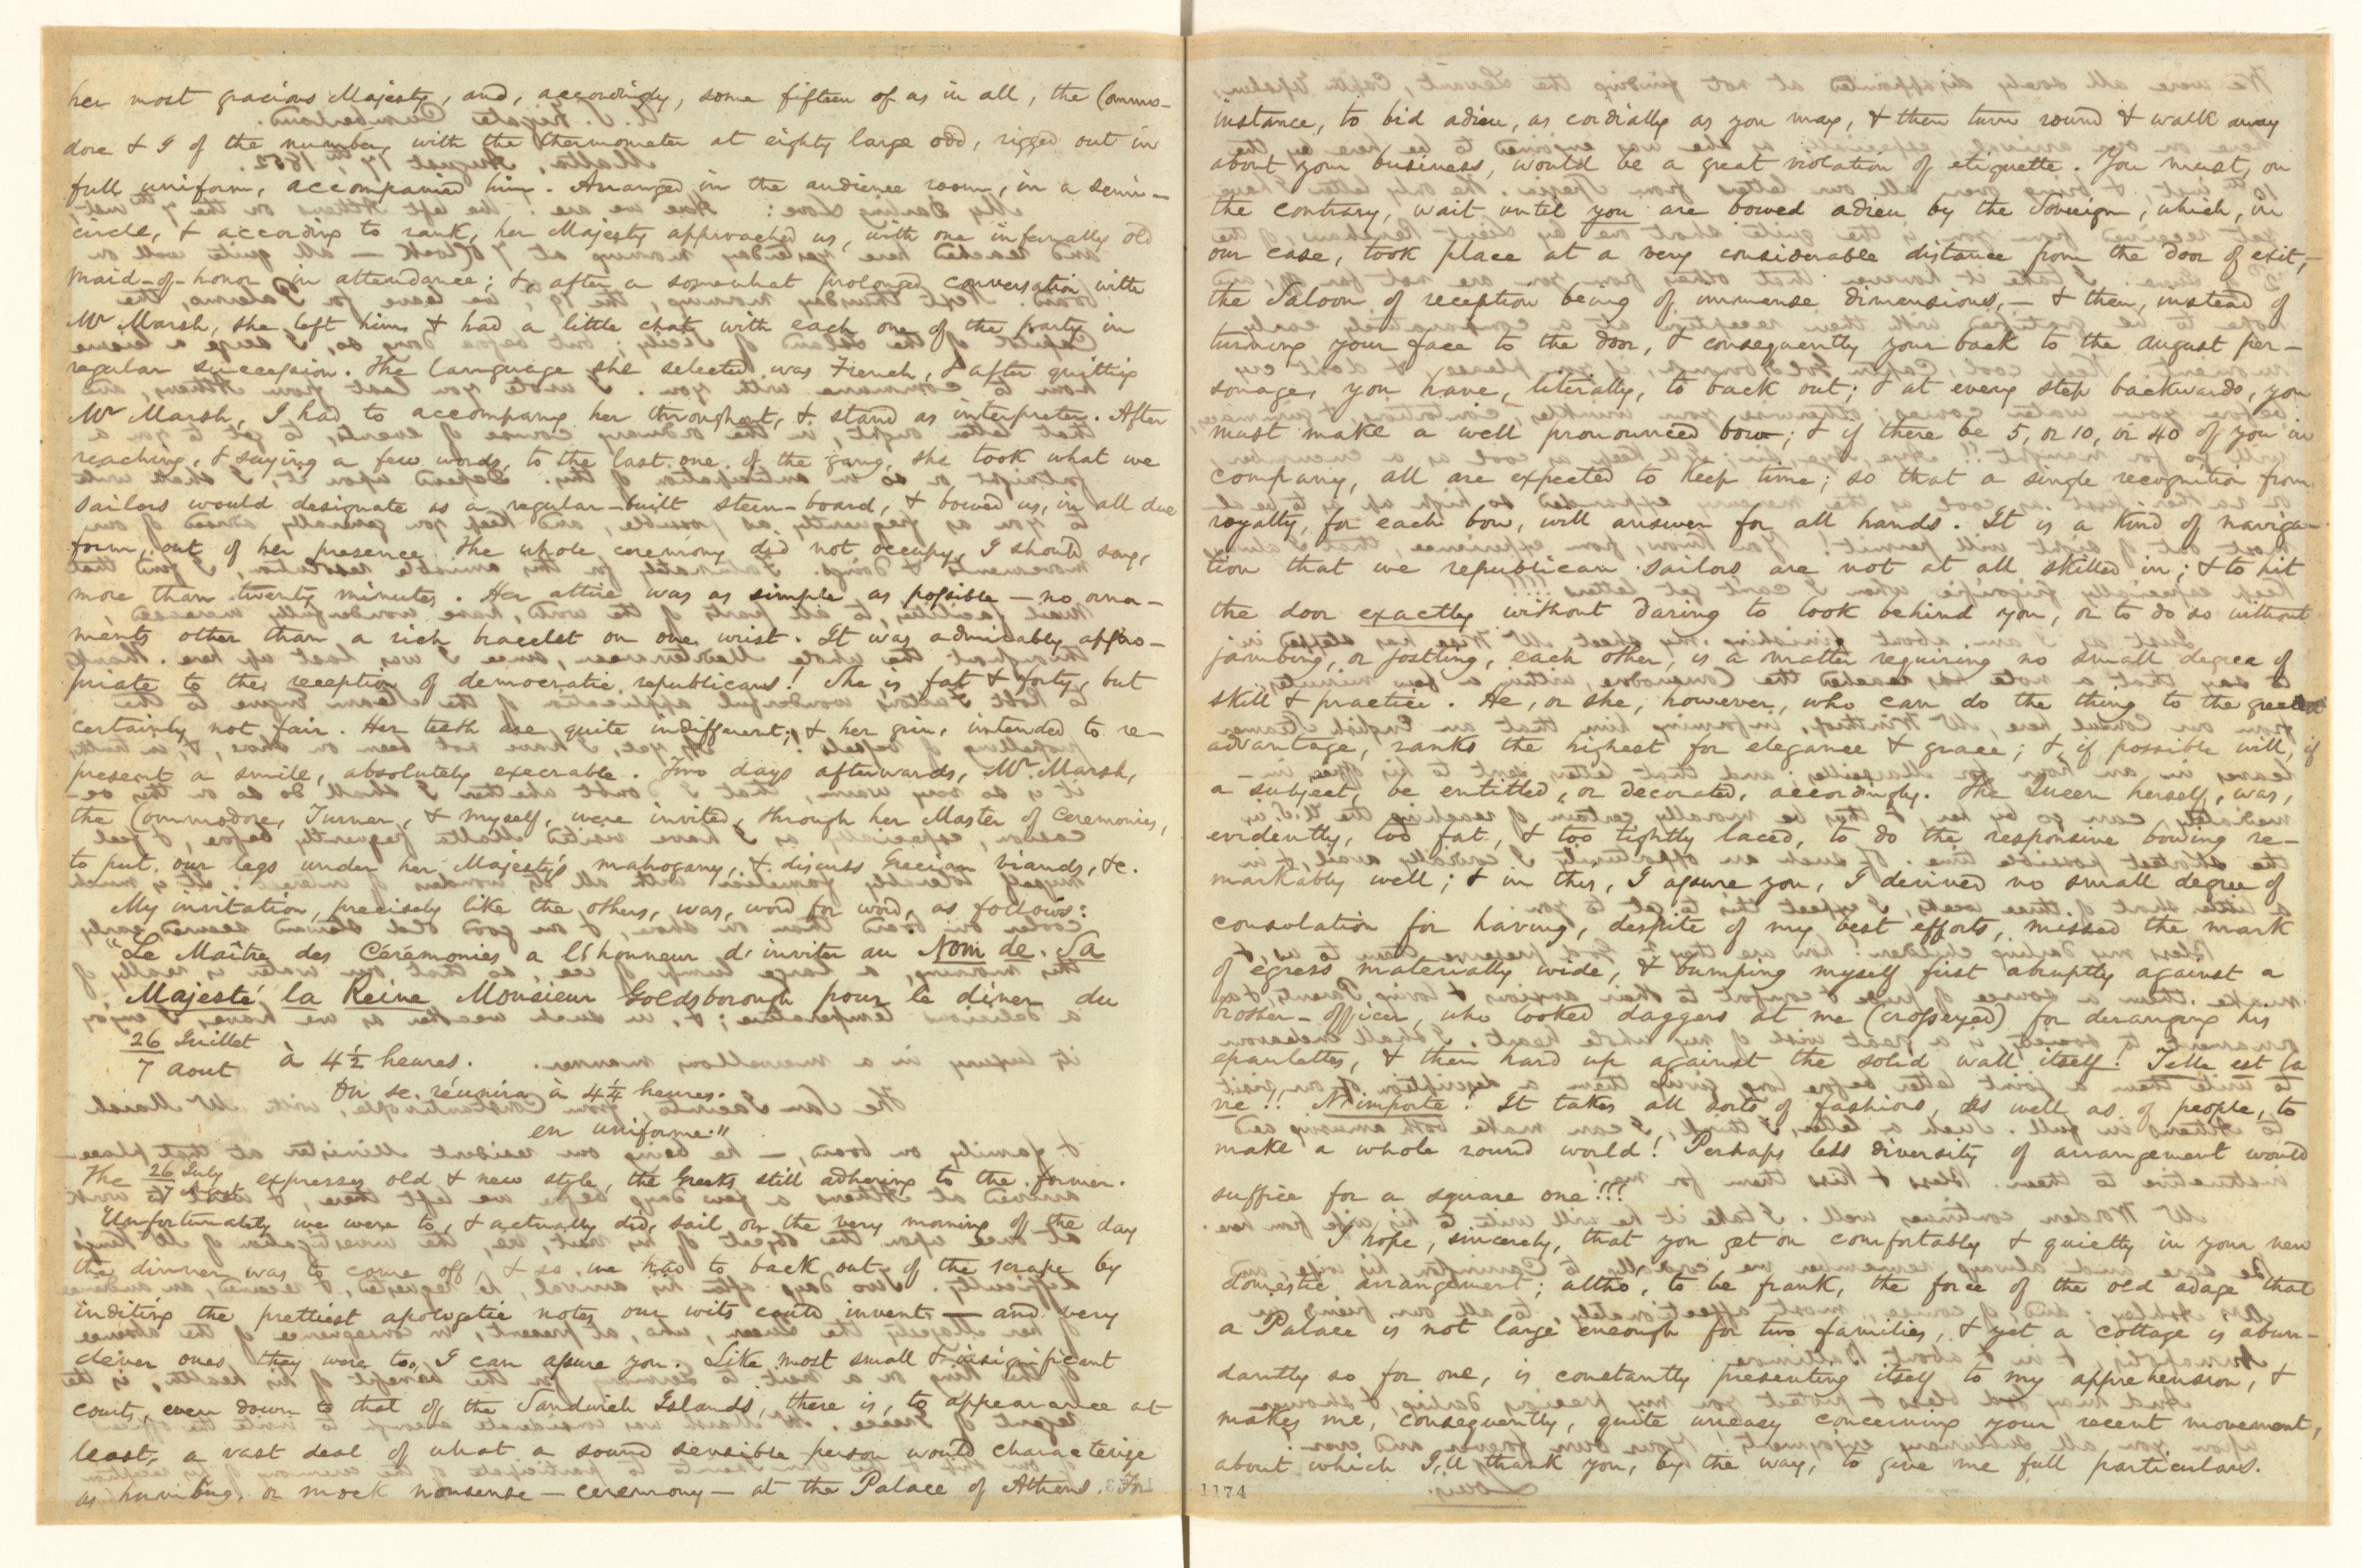 her most gracious Majesty, and, accordingly, some fifteen of us in all, the Commo-
dore & I of the number, with the thermometer at eighty large odd, rigged out in
full uniform, accompanied him. Arranged in the audience room, in a semi-
circle, & according to rank, her Majesty approached us, with one infernally old
maid-of-honor in attendance; &, after a somewhat prolonged conversation with
Mr Marsh, she left him & had a little chat with each one of the party in
regular succession. The language she selected was French, & after quitting
Mr Marsh, I had to accompany her throughout, & stand as interpreter. After
reaching, & saying a few words, to the last one of the gang, she took what we
sailors would designate as a regular-built stern-board, & bowed us, in all due
form, out of her presence. The whole ceremony did not occupy, I should say,
more than twenty minutes. Her attire was as simple as possible — no orna-
ments other than a rich bracelet on one wrist. It was admirably appro-
priate to the reception of democratic republicans! She is fat & forty, but
certainly not fair. Her teeth are quite indifferent; & her grin, intended to re-
present a smile, absolutely execrable. Two days afterwards, Mr. Marsh,
the Commodore, Turner, & myself, were invited, through her Master of Ceremonies,
to put our legs under her Majesty's mahogany, & discuss Grecian viands, &c.
My invitation, precisely like the others, was, word for word, as follows:
"Le Maître des Cérémonies a l'honneur d'inviter au Nom de Sa
Majesté la Reine Monsieur Goldsborough pour le diner du
26 Juillet
7 aout à 4½ heures.
On se réunira à 4¼ heures.
en uniforme."
The 26 July
7 August expresses old & new style, the Greeks still adhering to the former.
Unfortunately we were to, & actually did, sail on the very morning of the day
the dinner was to come off, & so we had to back out of the scrape by
inditing the prettiest apologetic notes our wits could invent — and very
clever ones they were too, I can assure you. Like most small & insignificant
courts, even down to that of the Sandwich Islands, there is, to appearance at
least, a vast deal of what a sound sensible person would characterize
as humbug, or mock nonsense — ceremony — at the Palace of Athens. For
instance, to bid adieu, as cordially as you may, & then turn round & walk away
about your business, would be a great violation of etiquette. You must, on
the contrary, wait until you are bowed adieu by the Sovereign, which, in
our case, took place at a very considerable distance from the door of exit, —
the Saloon of reception being of immense dimensions, — & then, instead of
turning your face to the door, & consequently your back to the august per-
sonage, you have, literally, to back out; & at every step backwards, you
must make a well pronounced bow; & if there be 5, or 10, or 40 of you in
company, all are expected to keep time; so that a single recognition from
royalty, for each bow, will answer for all hands. It is a kind of naviga-
tion that we republican sailors are not at all skilled in; & to hit
the door exactly without daring to look behind you, or to do so without
jambing, or jostling, each other, is a matter requiring no small degree of
skill & practice. He, or she, however, who can do the thing to the greatest
advantage, ranks the highest for elegance & grace; & if possible will, if
a subject, be entitled, or decorated, accordingly. The Queen herself, was,
evidently, too fat, & too tightly laced, to do the responsive bowing re-
markably well; & in this, I assure you, I derived no small degree of
consolation for having, despite of my best efforts, missed the mark
of egress materially wide, & bumping myself first abruptly against a
brother-officer, who looked daggers at me (crosseyed) for deranging his
epaulettes, & then hard up against the solid wall itself! Telle est la
vie!! N'importe! It takes all sorts of fashions, as well as of people, to
make a whole round world! Perhaps less diversity of arrangement would
suffice for a square one!!!
I hope, sincerely, that you get on comfortably & quietly in your new
domestic arrangement; altho, to be frank, the force of the old adage that
a Palace is not large enough for two families, & yet a cottage is abun-
dantly so for one, is constantly presenting itself to my apprehension, &
makes me, consequently, quite uneasy concerning your recent movement,
about which I'll thank you, by the way, to give me full particulars.
1174